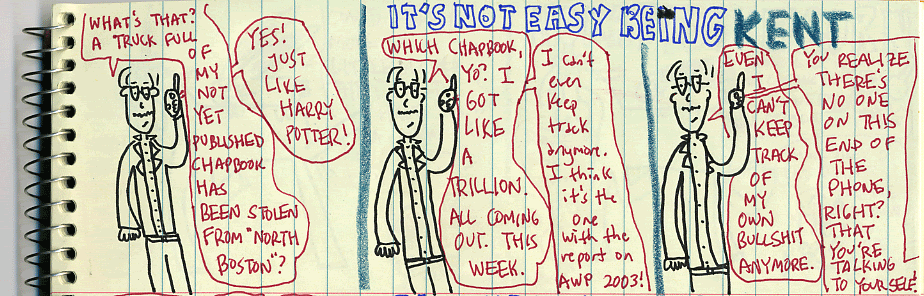 IT'S NOT EASY BEING KENT
WHAT'S THAT?
A TRUCK FULL
OF
MY
NOT
YET
PUBLISHED
CHAPBOOK
HAS
BEEN STOLEN
FROM "NORTH
BOSTON"?
YES!
JUST
LIKE
HARRY
POTTER!
WHICH CHAPBOOK,
YO? I
GOT
LIKE
A
TRILLION.
ALL COMING
OUT. THIS
WEEK.
I can't
even
keep
track
anymore.
I think
it's the
one
with the
report on
AWP 2003!
EVEN
I
CAN'T
KEEP
TRACK
OF
MY
OWN
BULLSHIT
ANYMORE.
YOU REALIZE
THERE'S
NO ONE
ON THIS
END OF
THE
PHONE,
RIGHT?
THAT
YOU'RE
TALKING
TO YOURSELF.